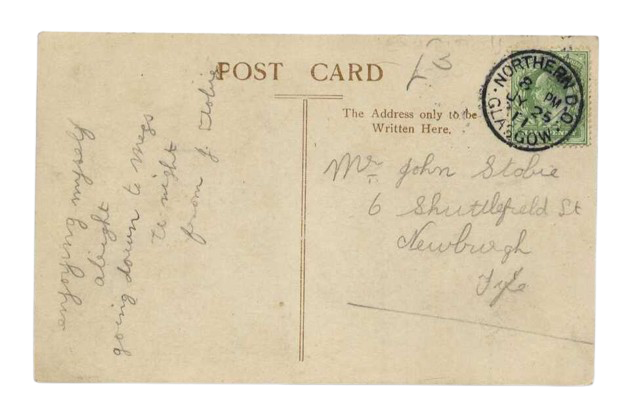 POST CARD
The Address only to be
Written Here.
NORTHERN D.O.
8 PM
JY 25
11
GLASGOW
Mr John Stobie
6 Shuttlefield St
Newburgh
Fyfe
alright
going down to Megs
to night
from J Stobie